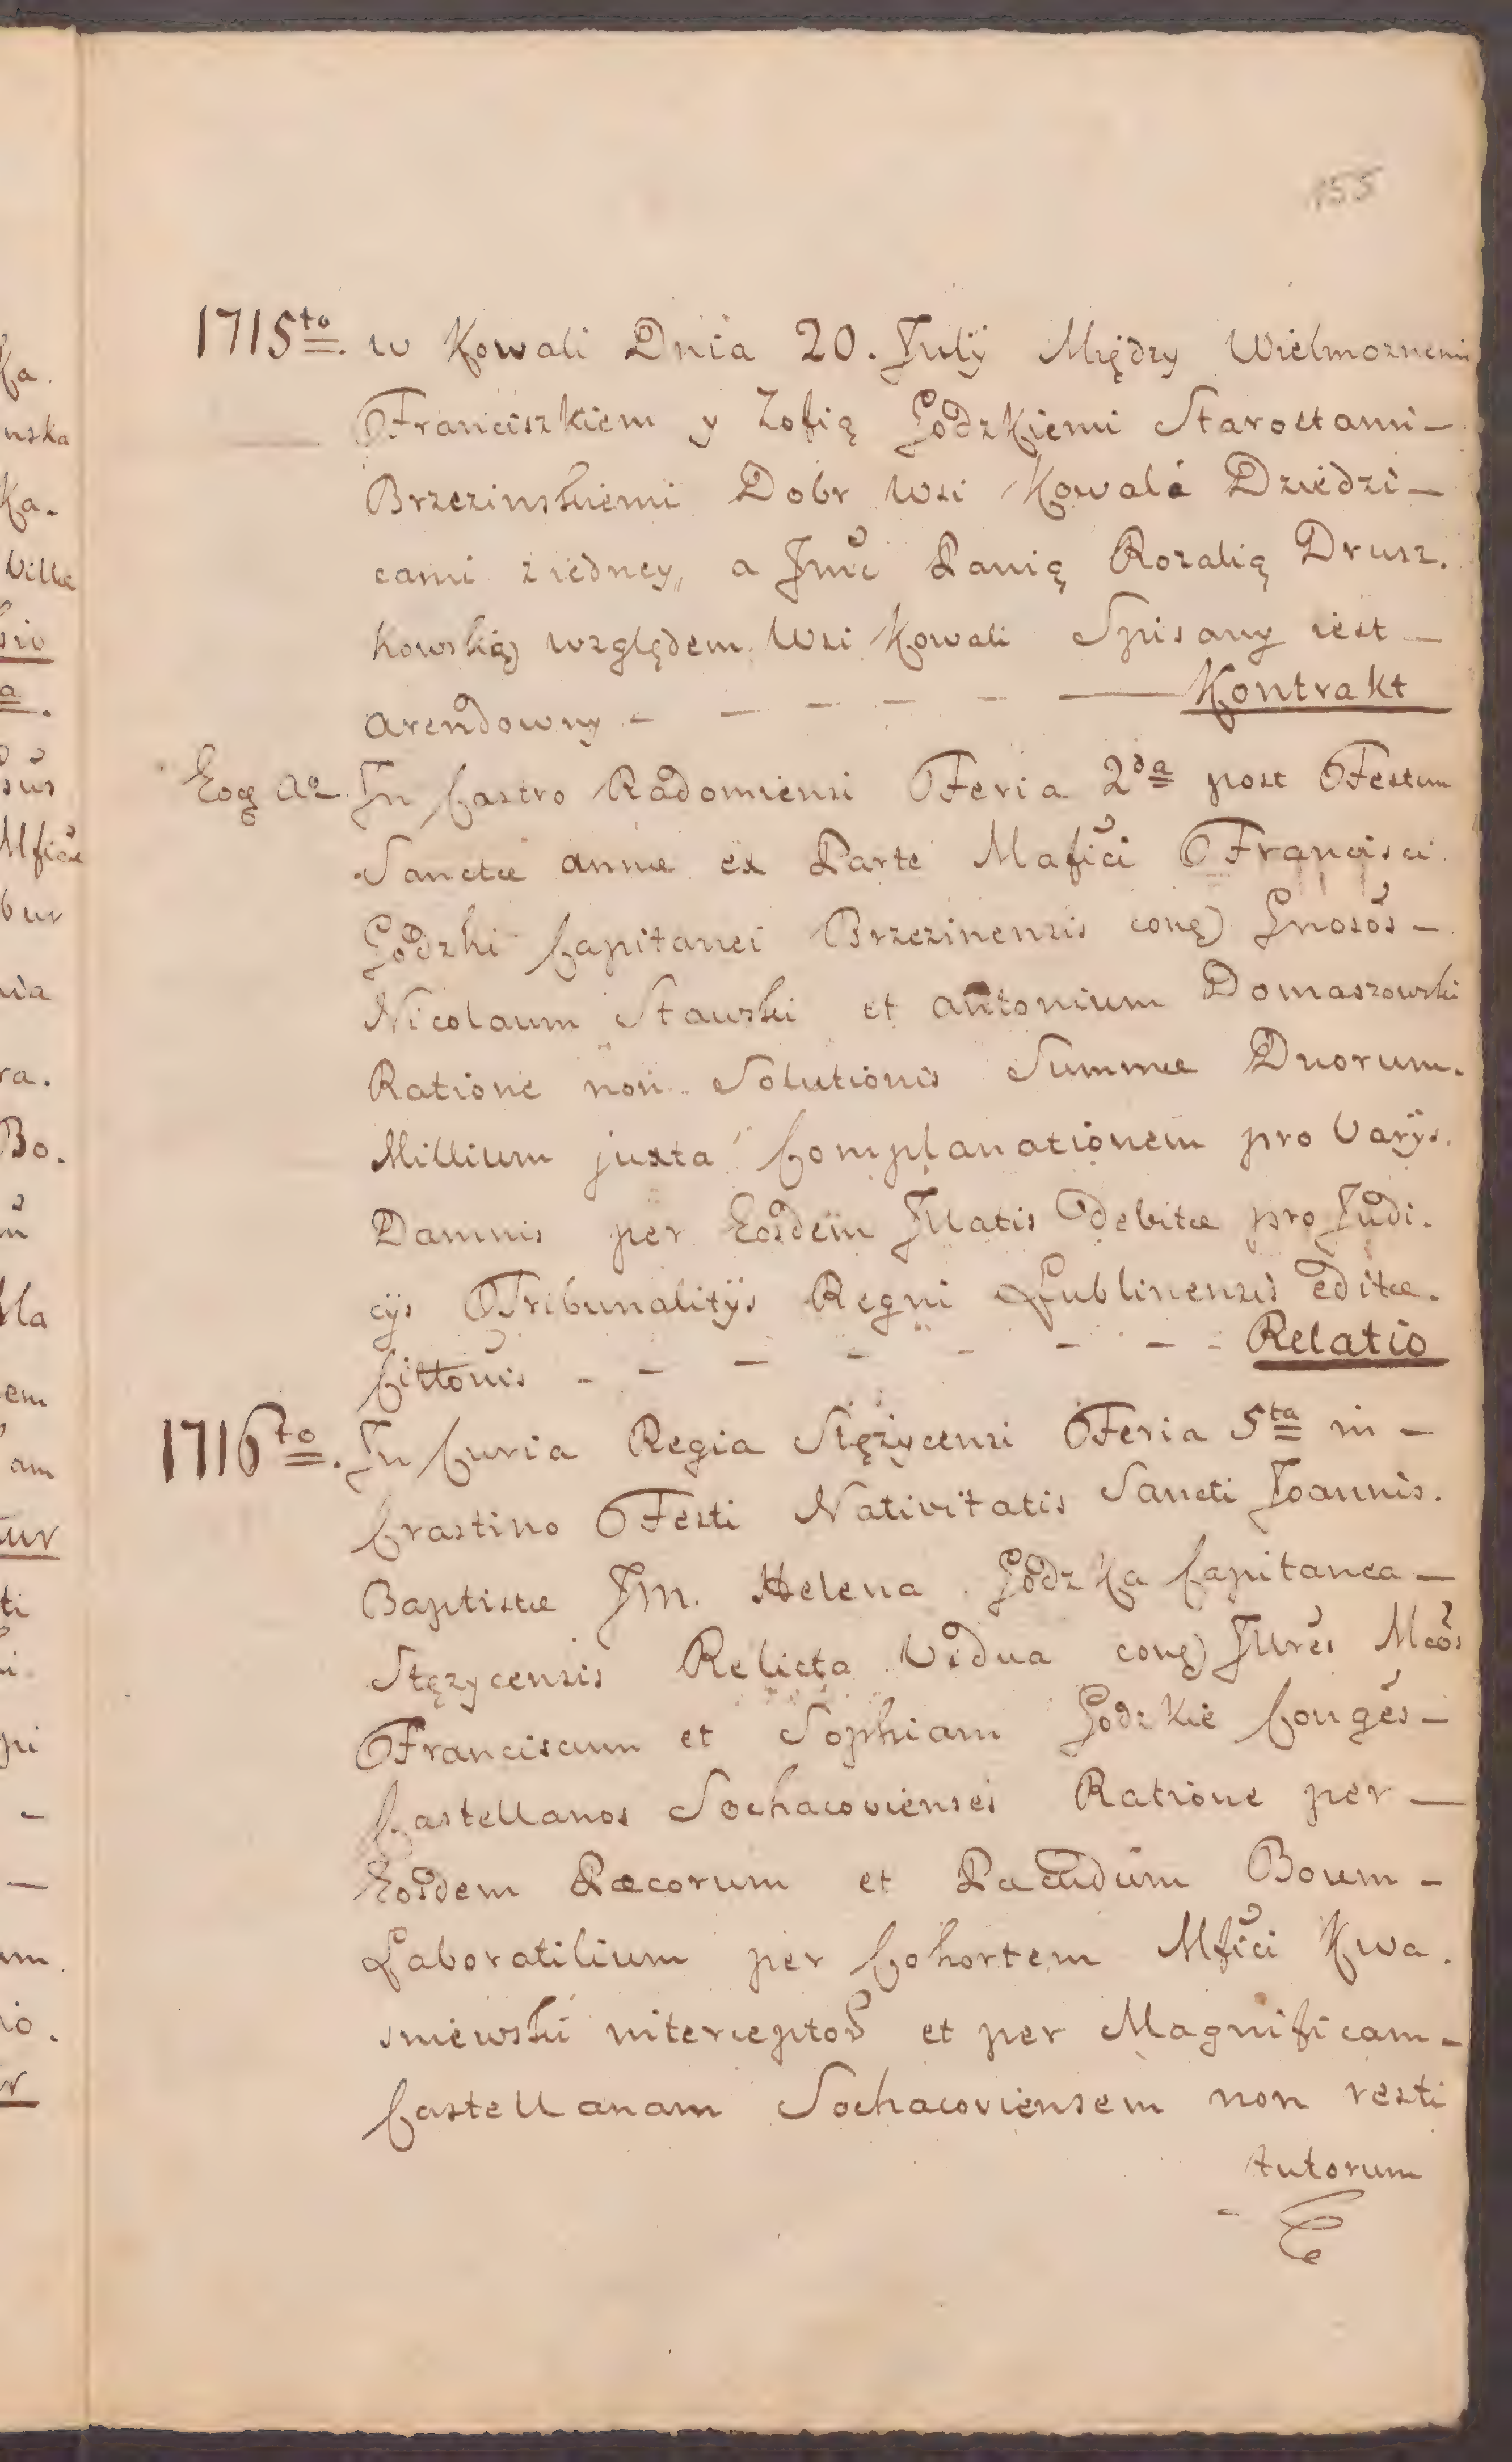 155
1715to. w Kowali Dnia 20. July Między Wielmoznemi
Franciszkiem y Zofią Godzkiemi Starostami –
Brzezinskiemi Dobr Wsi Kowala Dziedzi –
cami z iedney, a Jmć Panią Rozalią Drusz.
kowską względem Wsi Kowali Spisany iest –
arendowny - – – – – — Kontrakt
Eoq Ao. In Castro Radomiensi Feria 2da post Festum
Sanctæ annæ ex Parte Mafici Francisci.
Godzki Capitanei Brzezinensis conq) Gnosos –
Nicolaum Stawski et antonium Domaszowski
Ratione non Solutionis Summæ Duorum.
Millium juxta Complanationem pro Varys.
Damnis per Eosdem Illatis debitæ pro Judi.
cys Tribunalitys Regni Lublinensis editæ.
Cittonis - – – – – – – - Relatio
1716to. In Curia Regia Stęzycensi Feria 5ta in –
Crastino Festi Nativitatis Sancti Joannis.
Baptistæ Jm. Helena Godzka Capitanea –
Stęzycensis Relicta Vidua conq) Illres Mcos
Franciscum et Sophiam Godzkie Conges –
Castellanos Sochacovienses Ratione per —
Eosdem Pæcorum et Boum –
Laboratilium per Cohortem Mfici Kwa.
sniewski interceptos et per Magnificam –
Castellanam Sochacoviensem non resti
tutorum